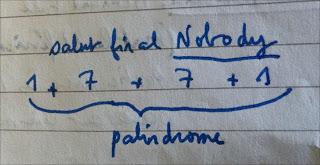 salut final Nobody
1 + 7 + 7 + 1
palindrome